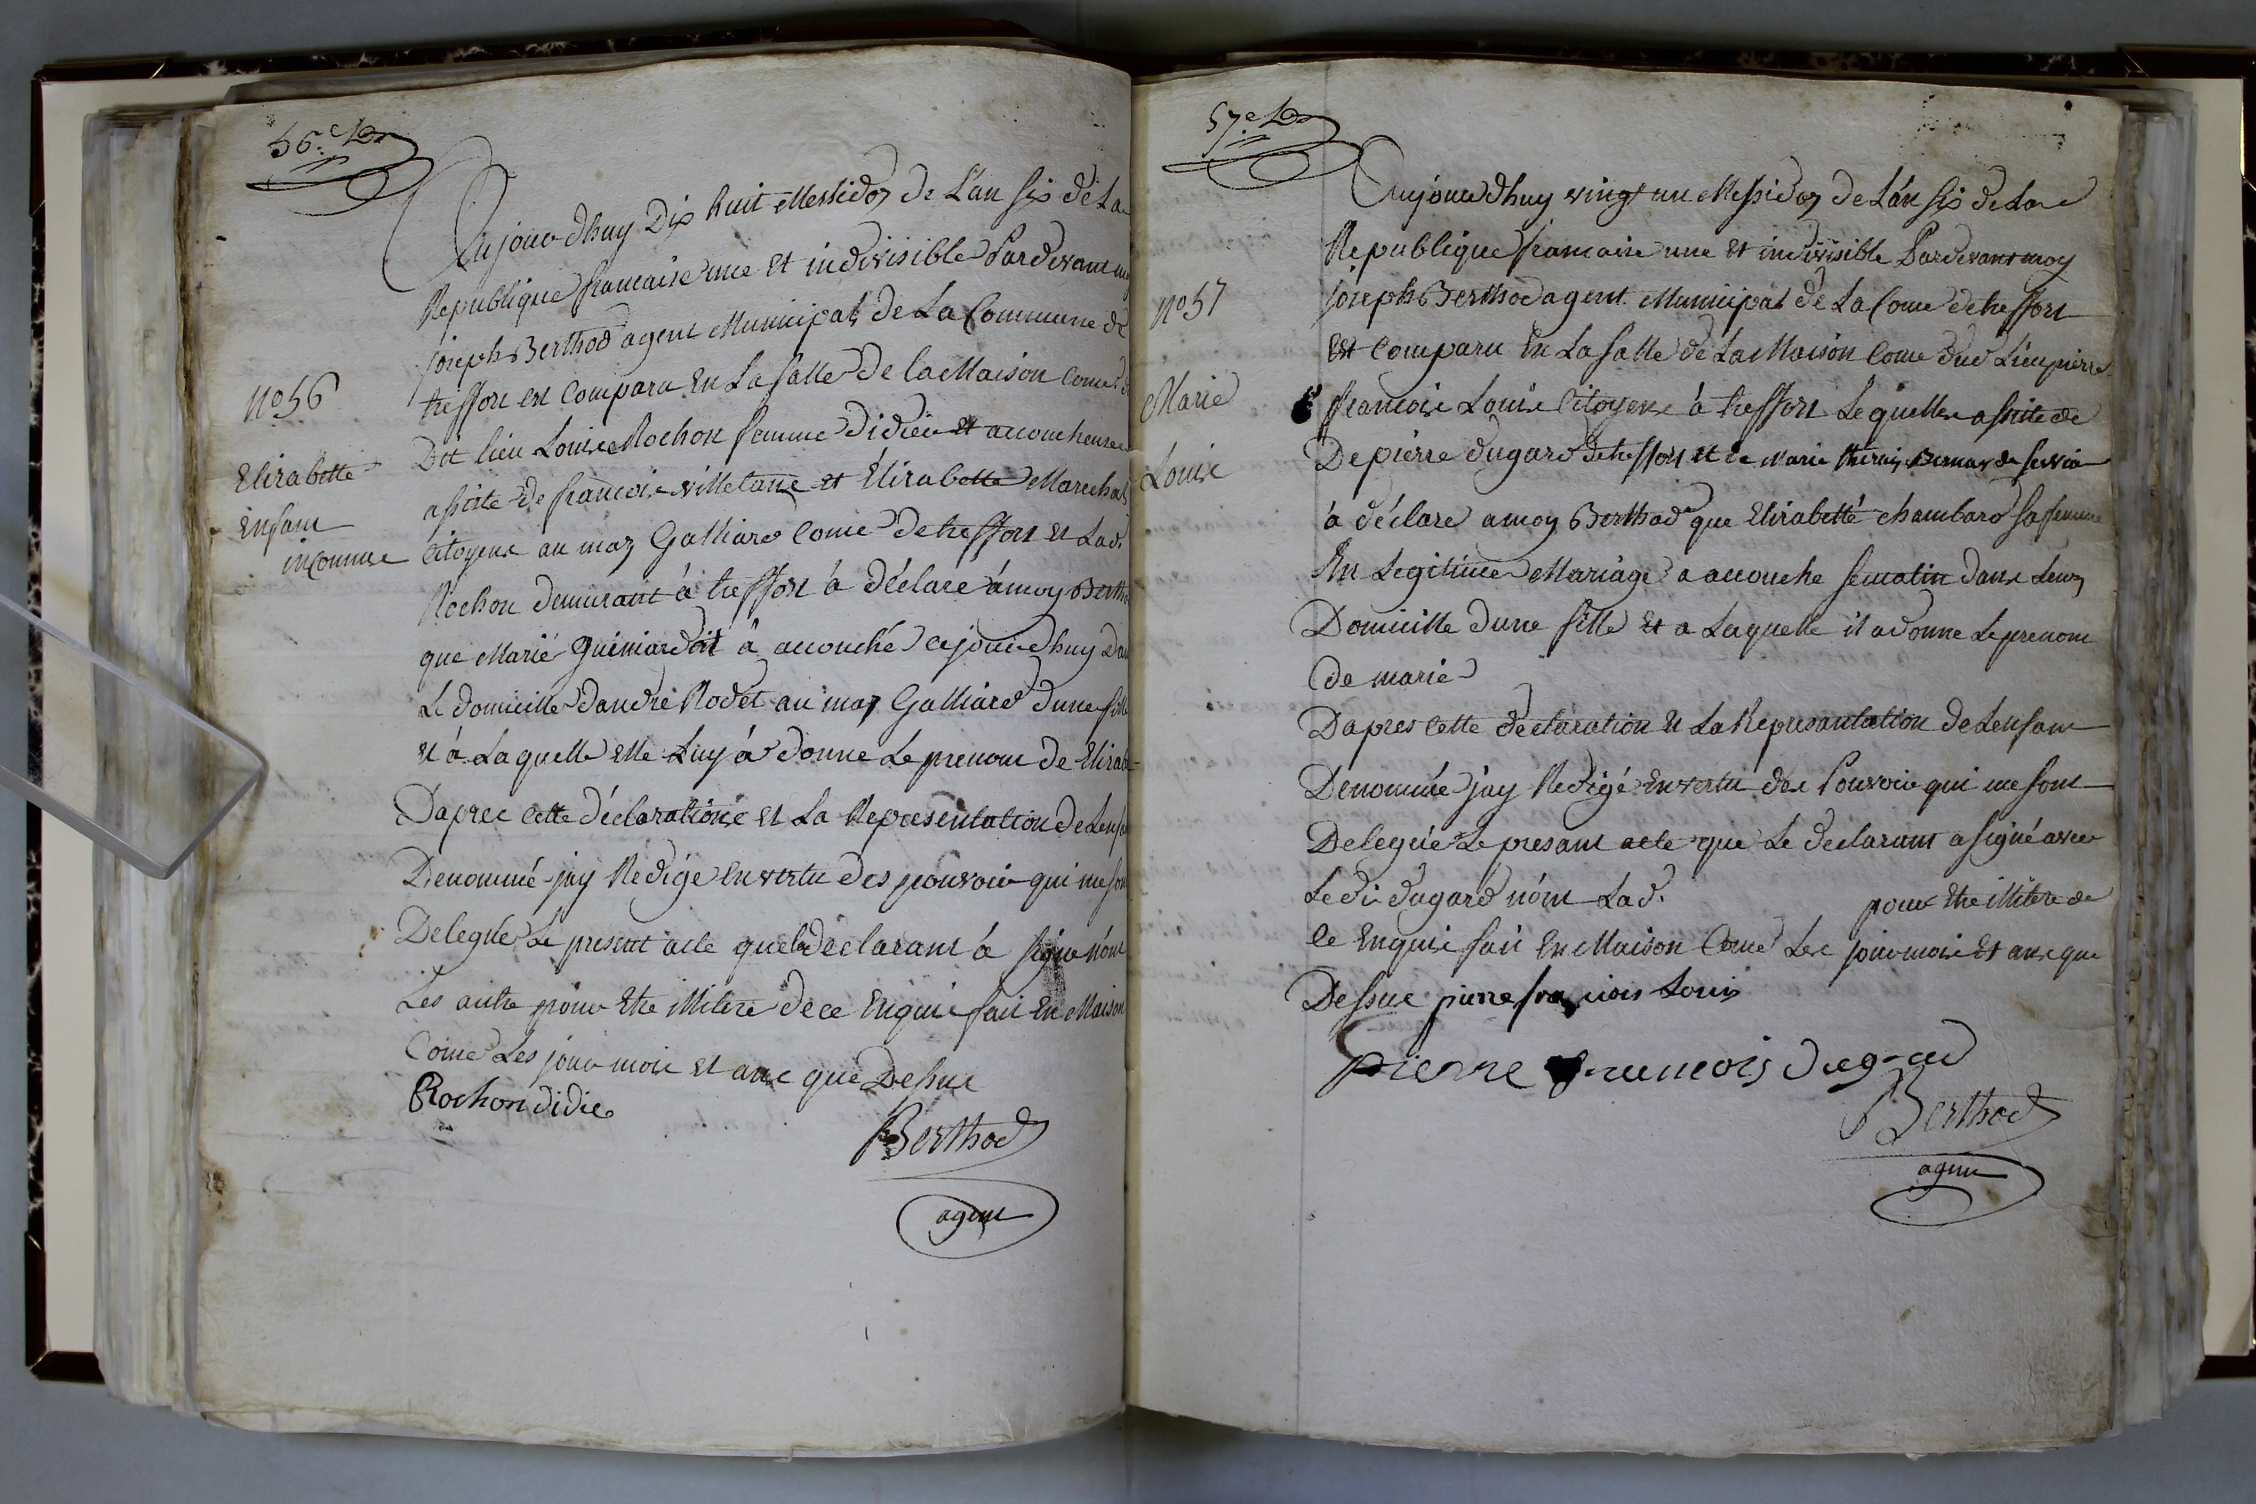 56.e
No 56
Elisabette
enfant
inconnue
Aujourdhuy Dix huit Messidor de L'an six de La
Republique francaise une et indivisible Pardevant moy
joseph Berthod agent Municipal de La Commune de
treffort est Comparu En La salle de la Maison Come d
Dit lieu Louise Rochon femme didier et acoucheuse
assiste de francoise villetane et Élisabette Marechal
Citoyens au maz Galliard Come de treffort et Lad.
Rochon demurant à treffort à déclare à moy Bertho
que Marie guimard à acouché cejourdhuy Dan
Le domicille d'andré Rodet au maz Galliard d'une fill
et à Laquelle elle Luy à donne Le prenom de Elisab
D'apres cette déclaration et La Representation de Lenfan
Denommé jay Redigé en vertu des pouvoir qui me son
Delegué Le present acte que le declarant à signe nom
Les autre pour Etre illitere de ce Enquis fait En Maison
Come Les jour mois et ans que Dessus
Rochon didier
Berthod
agent
57.e
No 57
Marie
Louis
Aujourdhuy vingt un Messidor de L'an six de La
Republique francaise une et indivisible Pardevant moy
joseph Berthod agent Municipal de La Come de treffort
Est Comparu En La salle de La Maison Come dud Lieu pierre
francois Louis Citoyens à treffort Lequelle assiste de
De pierre dugard de treffort et de Marie therais Bernar de servia
à déclare a moy Berthod que Elisabette chambard sa femme
En Legitime Mariage a acouche se matin dans Leur
Domicille d'une fille et a Laquelle il a donne Le prenom
de marie
D'apres cette declaration et La Represantation de Lenfant
Denommée jay Redigé en vertu des Pouvoir qui me sont
Delegué Le presant acte que Le declarant a signé avec
Ledi dugard nom Lad. pour Etre illitere de
ce Enquis fait En Maison Come Les jour mois Et ans que
Dessus pierre francois Louis
pierre francois dugard
Berthod
agent